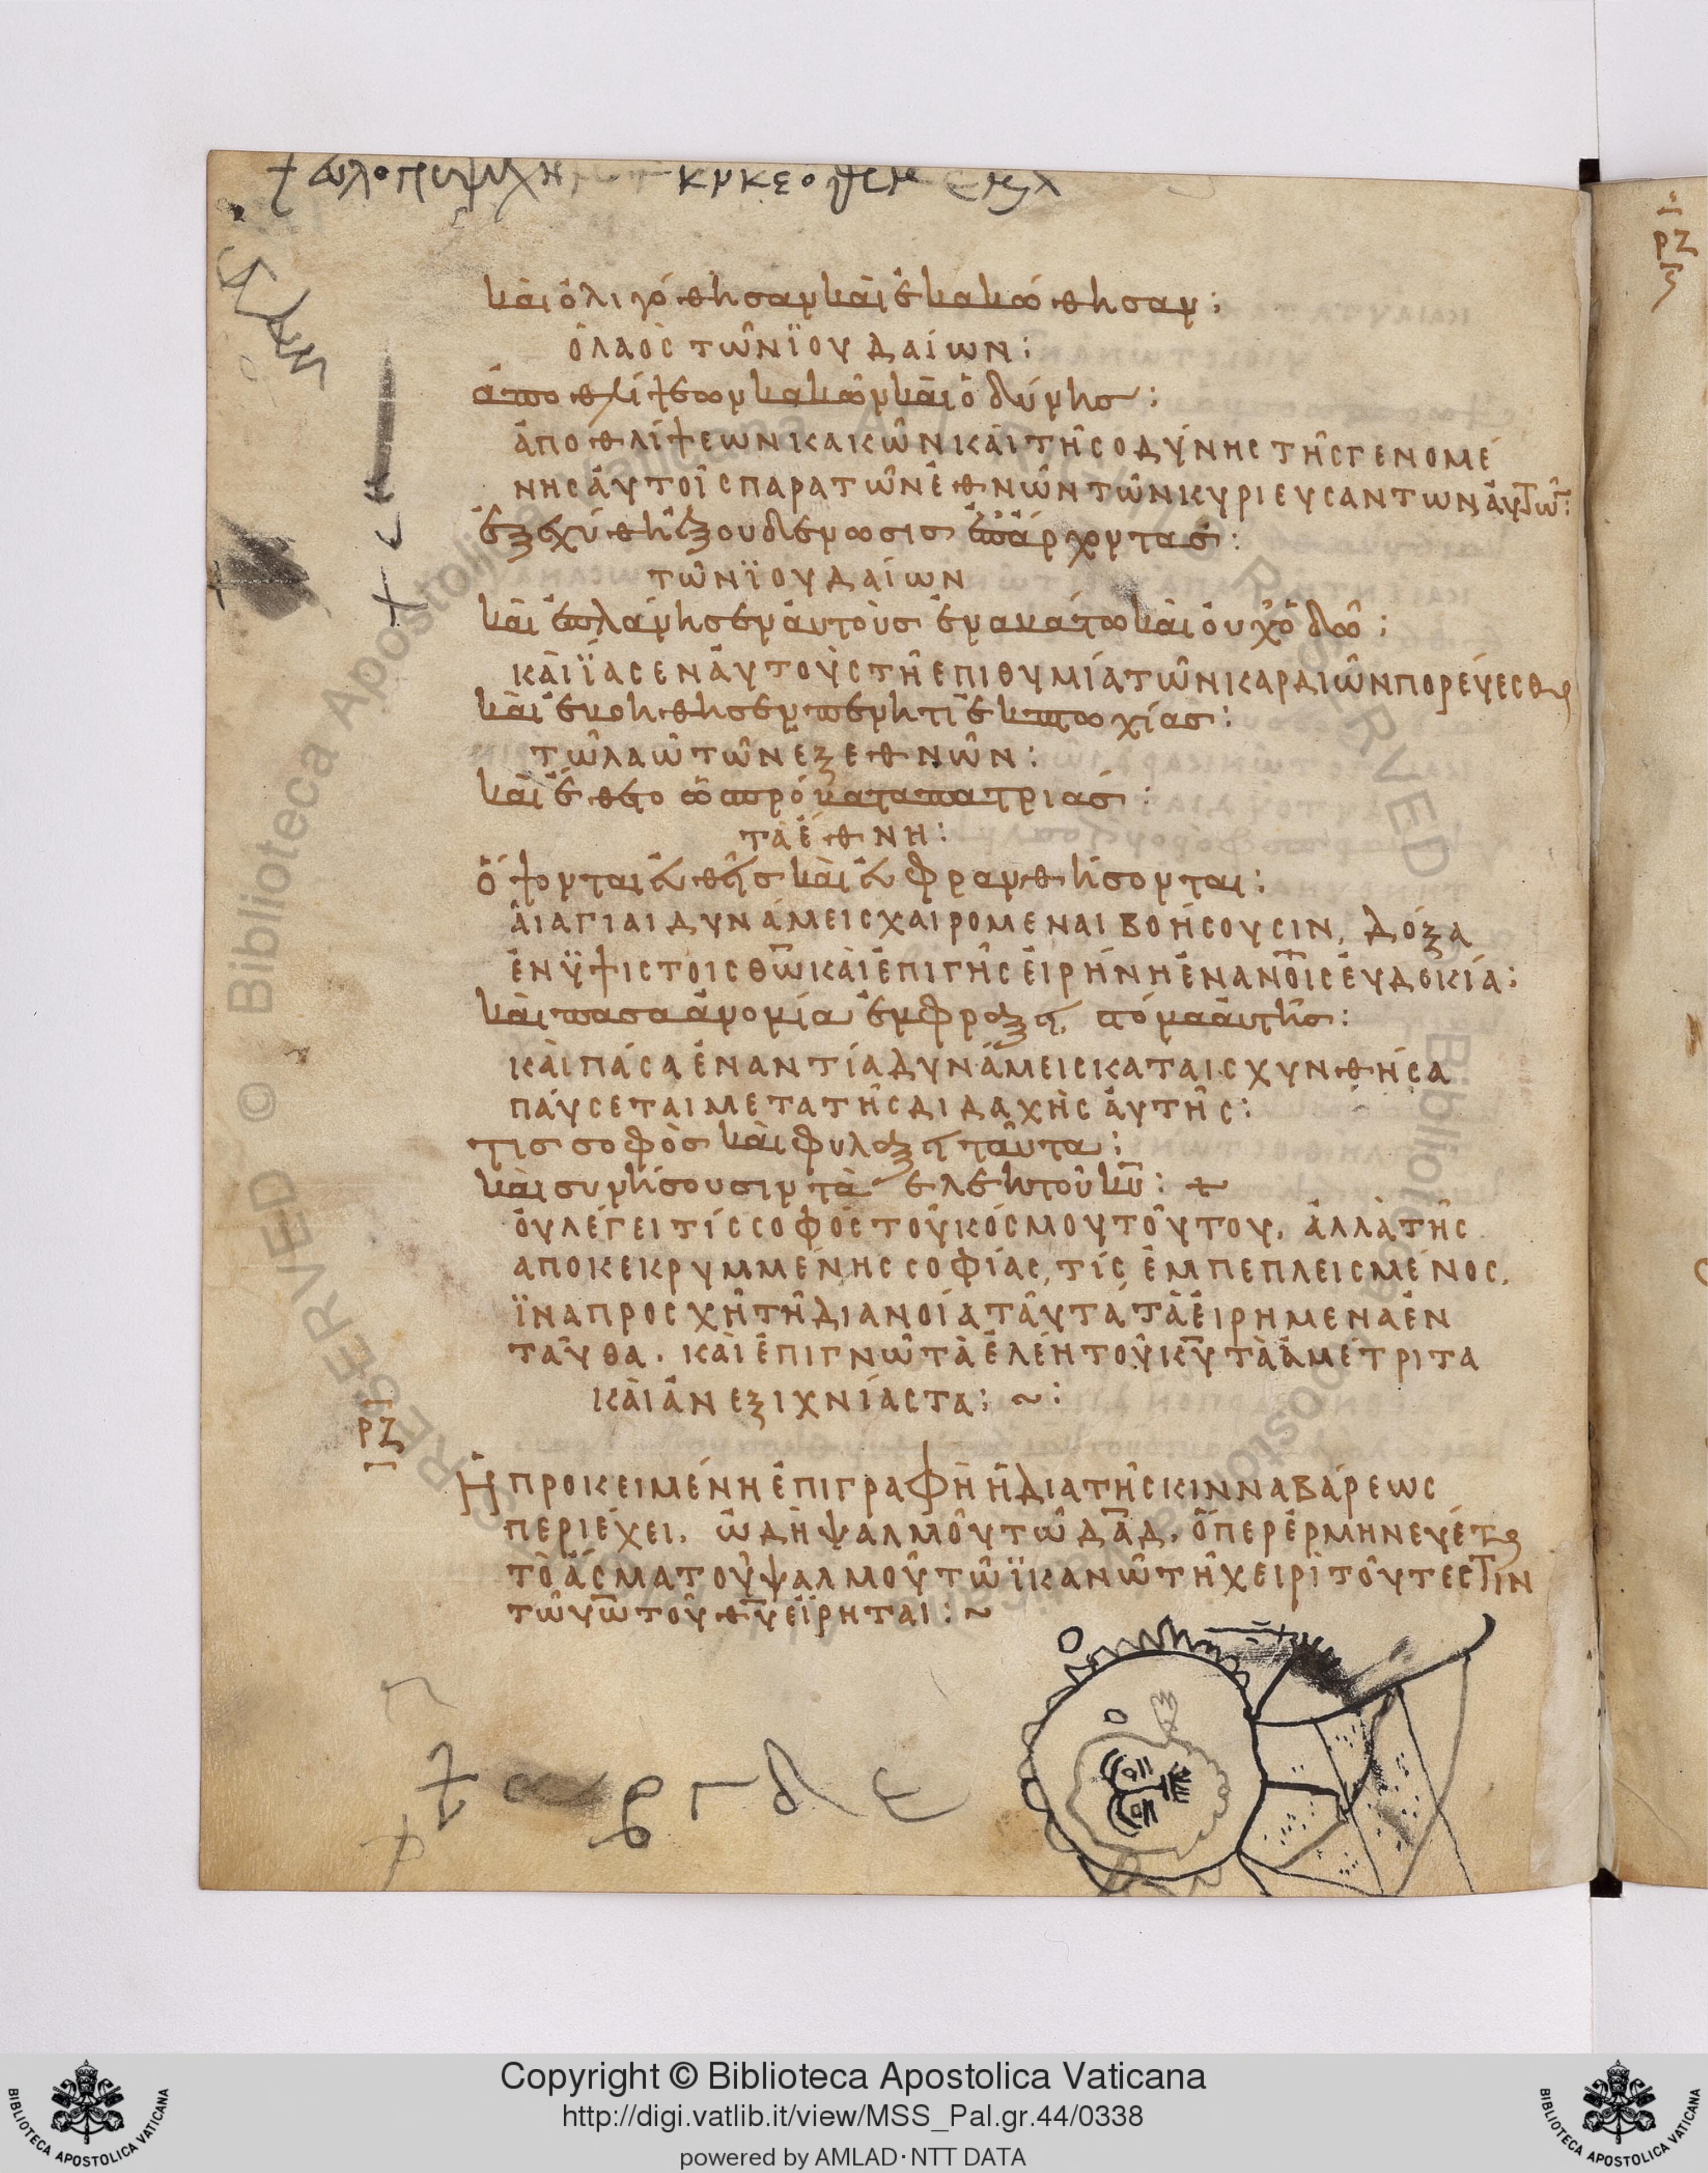 καὶ ὀλιγόθησαν καὶ ἐκακώθησαν :
ὁ λαὸς τῶν ϊουδαίων :
ἀπο θλίψεων κακῶν καὶ ὀδύνης :
ἀπο θλίψεων κακῶν καὶ τῆς οδύνης τῆς γενομέ
νης ἀυτοῖς παρα τῶν ἐθνῶν τῶν κυριευσαντων ἀυτῶ :
ἐξεχύθη ἐξουδένωσις ἐπ ἄρχοντας :
τῶν ϊουδαίων
καὶ ἐπλάνησεν ἀυτοὺς ἐν ἀβάτω καὶ ὀυχ ὁδῶ :
καὶ ϊάσεν ἀυτοὺς τῆ επιθυμία τῶν καρδιῶν πορέυεσθαι
καὶ ἐβοήθησεν πένητι ἐκ πτωχίας :
τῶ λαῶ τῶν εξ εθνῶν :
καὶ ἔθετο ὡς πρόβατα πατριάς :
τὰ ἔθνη :
ὄψονται ἐυθεῖς καὶ ἐυφρανθήσονται :
ἁι αγιαι δυνάμεις χαιρομεναι βοήσουσιν, δόξα
ἐν ϋψιστοις θω καὶ ἐπι γῆς ἐιρήνη ἐν ανοις ἐυδοκία :
καὶ πασα ἀνομία ἐμφράξει στόμα ἀυτῆς :
καὶ πάσα ἐναντία δυνάμεις καταισχυνθήσα
πάυσεται μετα τῆς διδαχὴς ἀυτῆς :
τις σοφὸς καὶ φυλάξει ταῦτα :
καὶ συνήσουσιν τὰ ελέη τοῦ κυ :
ὀυ λέγει τίς σοφός τοῦ κόσμου τούτου, ἀλλὰ τῆς
αποκεκρυμμένης σοφίας, τίς ἐμπεπλεισμένος,
ϊνα προσχῆ τῆ διανοία τᾶυτα τὰ ἐιρημενα ἐν
ταῦθα . καὶ ἐπιγνῶ τὰ ἐλέη τοῦ κυ τὰ ἀμέτριτα
καὶ ἀνεξιχνίαστα : ~ :
ρζ
Ἡ προκειμένη ἐπιγραφὴ ἡ δια τῆς κινναβάρεως
περιέχει. ὠδὴ ψαλμοῦ τῶ δαδ, ὅπερ ἑρμηνευέται
τὸ ἆσμα τοῦ ψαλμοῦ τῶ ϊκανῶ τῆ χειρὶ τοῦτεστιν
τῶ υω τοῦ θυ ἐίρηται : ~
ρζ
Copyright © Biblioteca Apostolica Vaticana
http://digi.vatlib.it/view/MSS_Pal.gr.44/0338
powered by AMLAD·NTT DATA
BIBLIOTECA APOSTOLICA VATICANA
BIBLIOTECA APOSTOLICA VATICANA